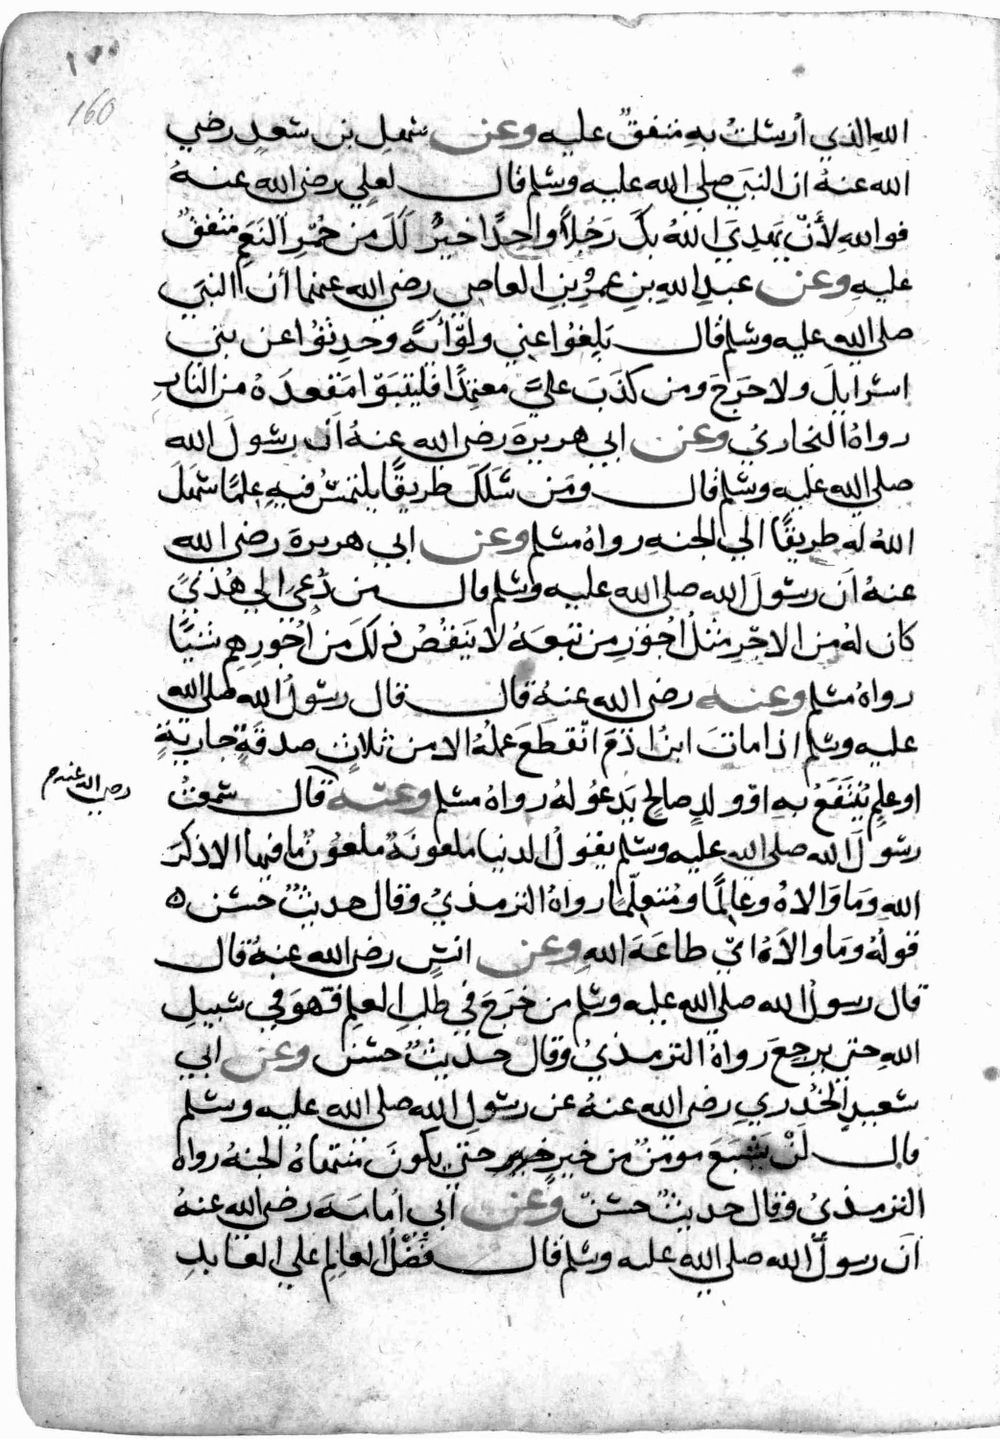 ١٥٥
160
الله الذي أرسلت به متفق عليه وعن سهل بن سعد رضي
الله عنه ان النبي صلى الله عليه وسلم قال لعلي رضي الله عنه
فوالله لأن يهدي الله بك رجلاً واحدًا خيرٌ لك من حمر النعم متفق
عليه وعن عبد الله بن عمرو بن العاصي رضي الله عنهما أن النبي
صلى الله عليه وسلم قال بلغوا عني ولو آية وحدثوا عن بني
اسرايل ولا حرج ومن كذب علي معتمدًا فليتبوا مقعده من النار
رواه البخاري وعن ابي هريرة رضي الله عنه أن رسول الله
صلى الله عليه وسلم قال ومن سلك طريقًا يلتمس فيه علمًا سهل
الله له طريقًا الي الجنه رواه مسلم وعن ابي هريرة رضي الله
عنه أن رسول الله صلى الله عليه وسلم قال من دعى الي هدىً
كان له من الاجر مثل أجور من تبعه لا ينقص ذلك من أجورهم شيئًا
رواه مسلم وعنه رضي الله عنه قال قال رسول الله صلى الله
عليه وسلم اذا مات ابن آدم انقطع عمله الا من ثلاث صدقةٍ جاريةٍ
او علمٍ ينتفع به او ولدٍ صالحٍ يدعو له رواه مسلم وعنه قال سمعت
رضي الله عنهم
رسول الله صلى الله عليه وسلم يقول الدنيا ملعونة ملعون ما فيها الا ذكر
الله وما والاه وعالمًا ومتعلمًا رواه الترمذي وقال حديث حسن ه
قوله وما والاه اي طاعة الله وعن انس رضي الله عنه قال
قال رسول الله صلى الله عليه وسلم من خرج في طلب العلم فهو في سبيل
الله حتي يرجع رواه الترمذي وقال حديث حسن وعن ابي
سعيد الخدري رضي الله عنه عن رسول الله صلى الله عليه وسلم
قال لن يشبع مومن من خير حتي يكون منتهاه الجنه رواه
الترمذي وقال حديث حسن وعن ابي امامة رضي الله عنه
أن رسول الله صلى الله عليه وسلم قال فضل العالم علي العابد